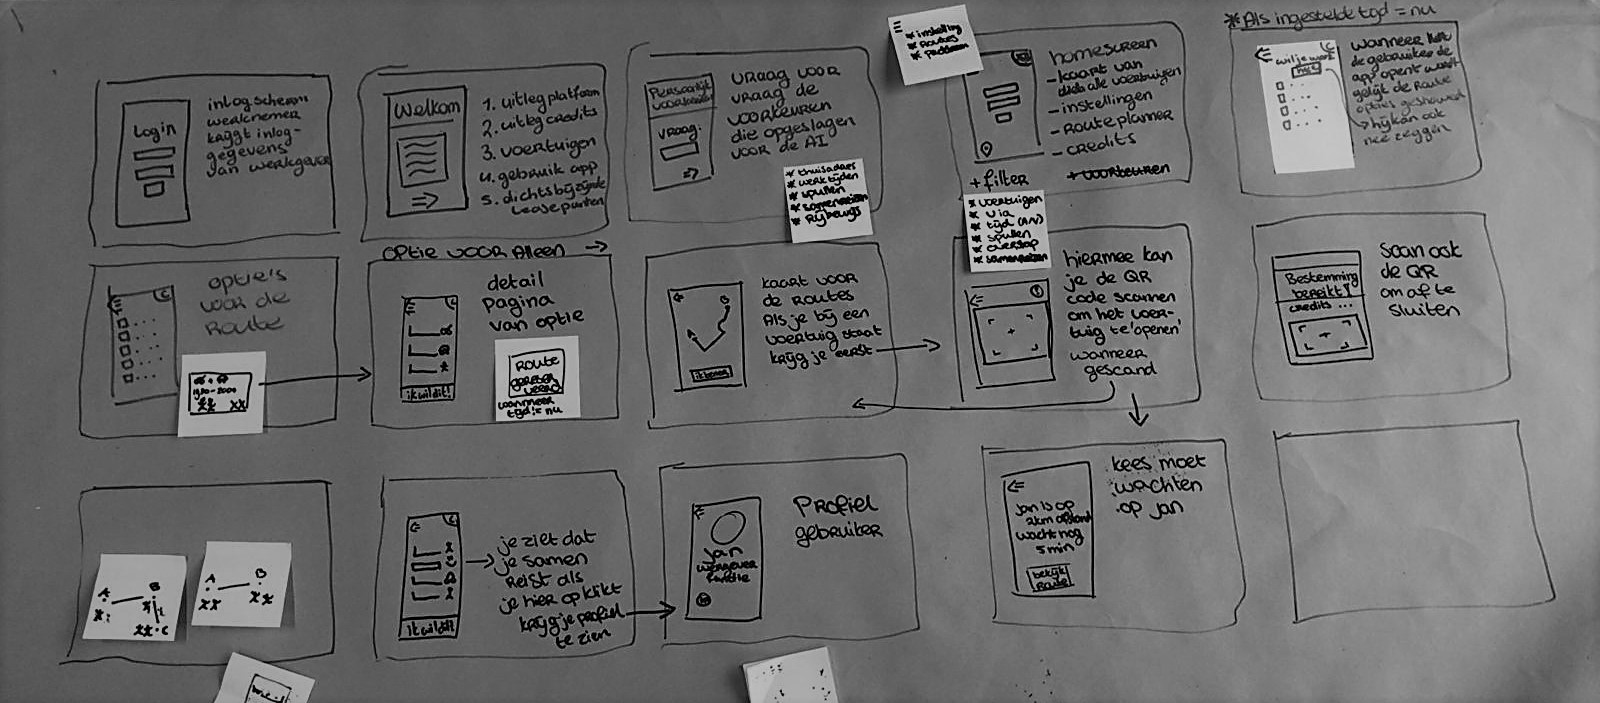 Login
inlogscherm
werknemer
krijgt inlog-
gegevens
van werkgever
Welkom
1. uitleg platform
2. uitleg credits
3. voertuigen
4. gebruik app
5. dichtsbijzijnde
leasepunten
Persoonlijk
voorkeuren
vraag:
vraag voor
vraag de
voorkeuren
die opgeslagen
voor de AI
* thuisadres
* werktijden
* spullen
* samenreizen
* Rijbewijs
* instelling
* Routes
homescreen
- kaart van
alle voertuigen
- instellingen
- Routeplanner
- credits
+ voorkeuren
+ filter
* voertuigen
* via
* spullen
* overstap
* samenreizen
* Als ingestelde tijd = nu
wil je
wanneer
de gebruiker de
app opent wordt
gelijk de Route
opties
hij kan ook
nee zeggen
optie's
voor de
Route
optie voor Alleen
detail
pagina
van optie
ik wil dit!
Route
wanneer
tijd != nu
kaart voor
de Routes
Als je bij een
voertuig staat
krijg je eerst
B
hiermee kan
je de QR
code scannen
om het voer-
tuig te 'openen'
wanneer
gescand
Bestemming
bereikt!
credits ...
Scan ook
de QR
om af te
sluiten
A
B
C
A
B
ik wil dit!
je ziet dat
je samen
Reist als
je hier op klikt
krijg je profiel
te zien
Jan
Profiel
gebruiker
Jan is op
2km afstand
wacht nog
5 min
bekijk
Route
kees moet
wachten
op jan